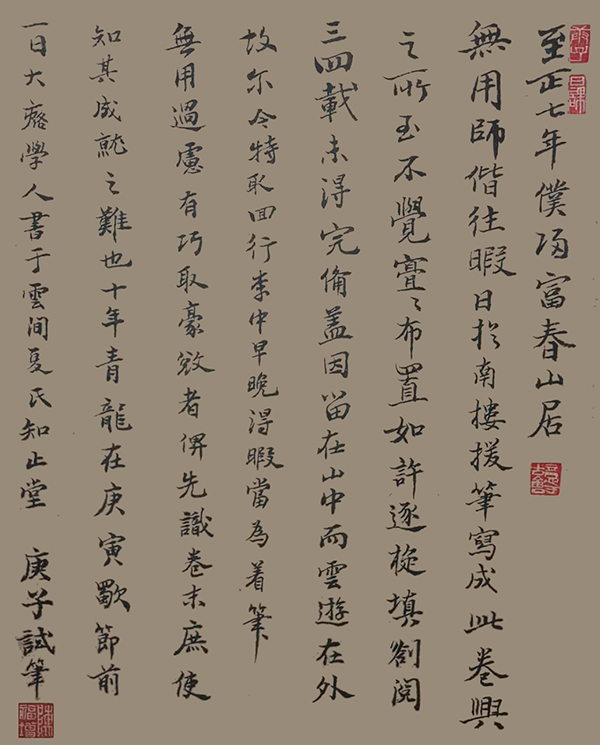 庚子
日課
至正七年僕歸富春山居
無用師偕往暇日於南樓援筆寫成此卷興
之所至不覺亹〻布置如許逐旋填劄閱
三四載未得完俻蓋因留在山中而雲遊在外
故尔今特取回行李中早晚得暇當為着筆
無用過慮有巧取豪敓者俾先識卷末庶使
知其成就之難也十年青龍在庚寅歜節前
一日大癡學人書于雲間夏氏知止堂 庚子試筆